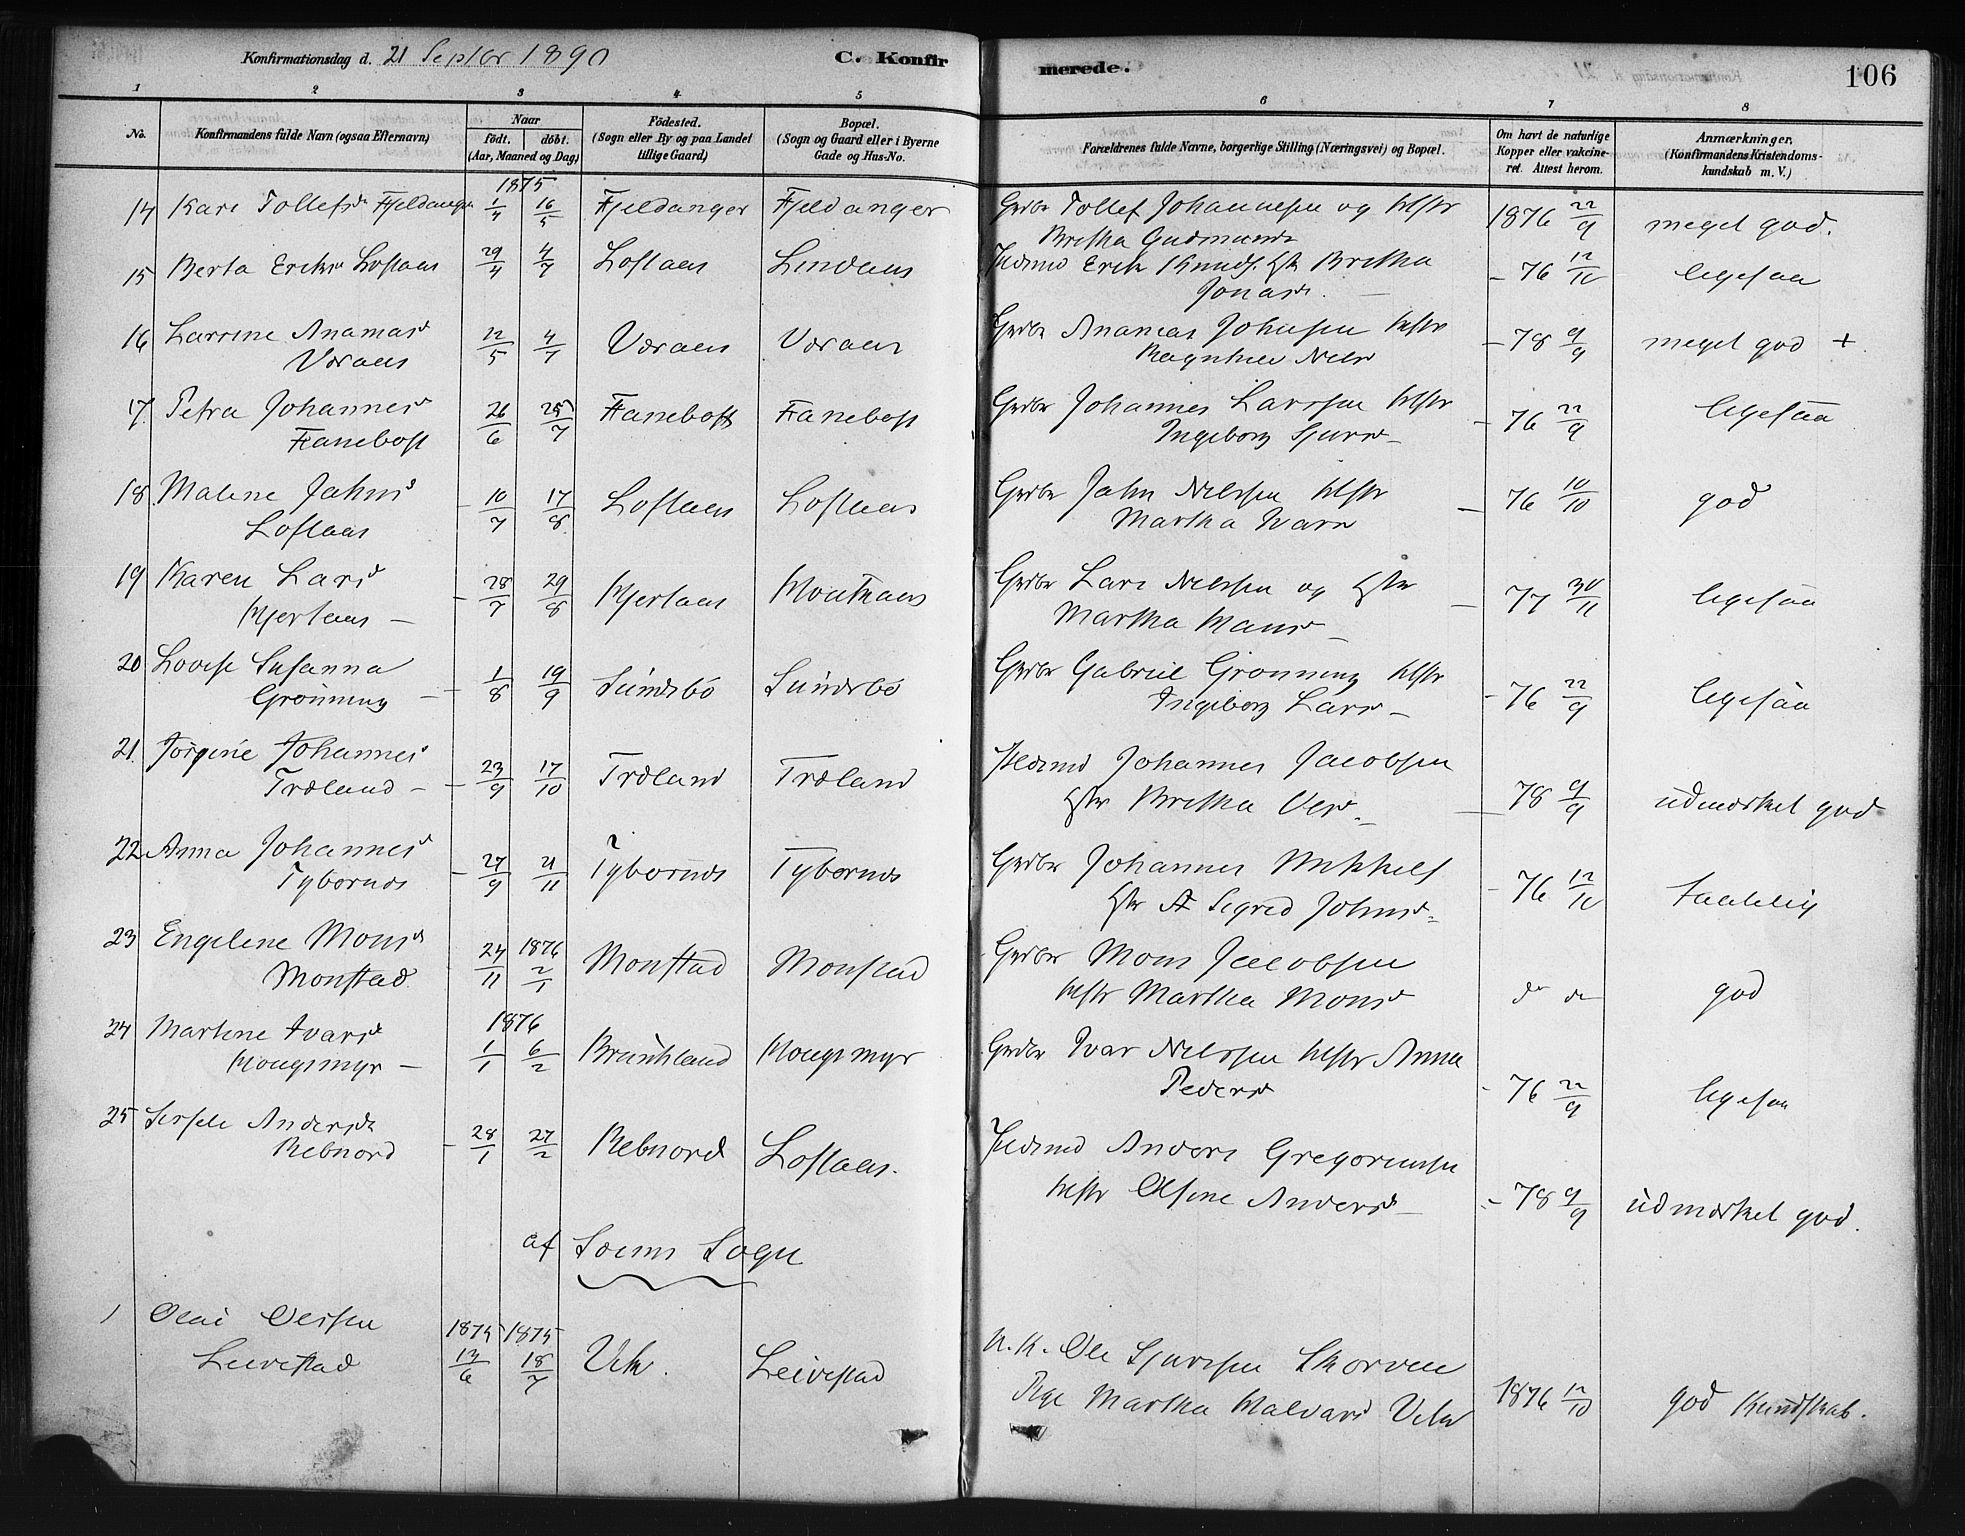 Konfirmationsdag d. 21 Septbr 1890
C. Konfirmerede.
106
1 2 3 4 5 6 7 8
No.
Konfirmandens fulde Navn (ogsaa Efternavn)
Naar
födt. döbt.
(Aar, Maaned og Dag)
Födested.
(Sogn eller By og paa Landet
tillige Gaard)
Bopæl.
(Sogn og Gaard eller i Byerne
Gade og Hus-No.
Forældrenes fulde Navne, borgerlige Stilling (Næringsvei) og Bopæl.
Om havt de naturlige
Kopper eller vakcine-
ret. Attest herom.
Anmærkninger,
(Konfirmandens Kristendoms-
kundskab m. V.)
1875
14 Kari Tollefsd Fjeldanger 1/4 16/5 Fjeldanger Fjeldanger Grdbr Tollef Johannesen og Hstr 1876 22/9 meget god.
Britha Gudmunds
15 Berta Eriksd Loftaas 29/4 4/7 Loftaas Lindaas Erik Knuds. Hstr Britha - 76 12/10 ligesaa
Jonasd.
16 Larsine Ananiasd 22/5 4/7 Væraas Væraas Grdbr Ananias Johnsen Hstr - 78 9/9 meget god +
Væraas Ragnhild Nilsd
17 Petra Johannesd 26/6 25/7 Fanebost Fanebost Grdbr Johannes Larssen Hstr - 76 22/9 ligesaa
Fanebost Ingeborg Sjursd -
18 Malene Johnsd - 10/7 17/8 Loftaas Loftaas Grdbr John Nilssen Hstr - 76 10/10 god
Loftaas Martha Ivarsd
19 Karen Larsd - 28/7 29/8 Hjertaas Grdbr Lars Nilssen og Hstr - 77 30/11 ligesaa
Hjertaas - Martha Hansd -
20 Lovise Susanna - 1/8 19/9 Sundsbö Sundsbö Grdbr Gabriel Grönning Hstr - 76 22/9 ligesaa
Grönning Ingeborg Larsd -
21. Jörgine Johannesd - 23/9 17/10 Træland Træland Johannes Jacobsen - 78 9/9 udmærket god
Træland - Hstr Britha Olsd -
22 Anna Johannesd - 27/9 21/11 Tybornes Tybornes Grdbr Johannes Mikkels - 76 12/10 taalelig
Tybornes Hstr Sigrid Johnsd -
23 Engeline Monsd 24/11 1876 2/1 Monstad Monstad Grdbr Mons Jacobsen do do god
Monstad Hstr Martha Monsd
1876
24 Martine Ivarsd 1/1 6/2 Brunkland Hougsmyr Grdbr Ivar Nilssen Hstr Anna - 76 22/9 ligesaa
Hougsmyr - Pedersd
25 Andersd - 28/1 27/2 Rebnord Loftaas. Anders Gregoriussen - 78 9/9 udmærket god.
Rebnord Hstr Olsine Andersd -
af Sæims Sogn
1 Olai Olessen 1875 13/6 1875 18/7 Vik. Leivestad U. K. Ole Sjurssen Skorven 1876 12/10 god Kundskab.
Leivestad Pige Martha Halvars Vik